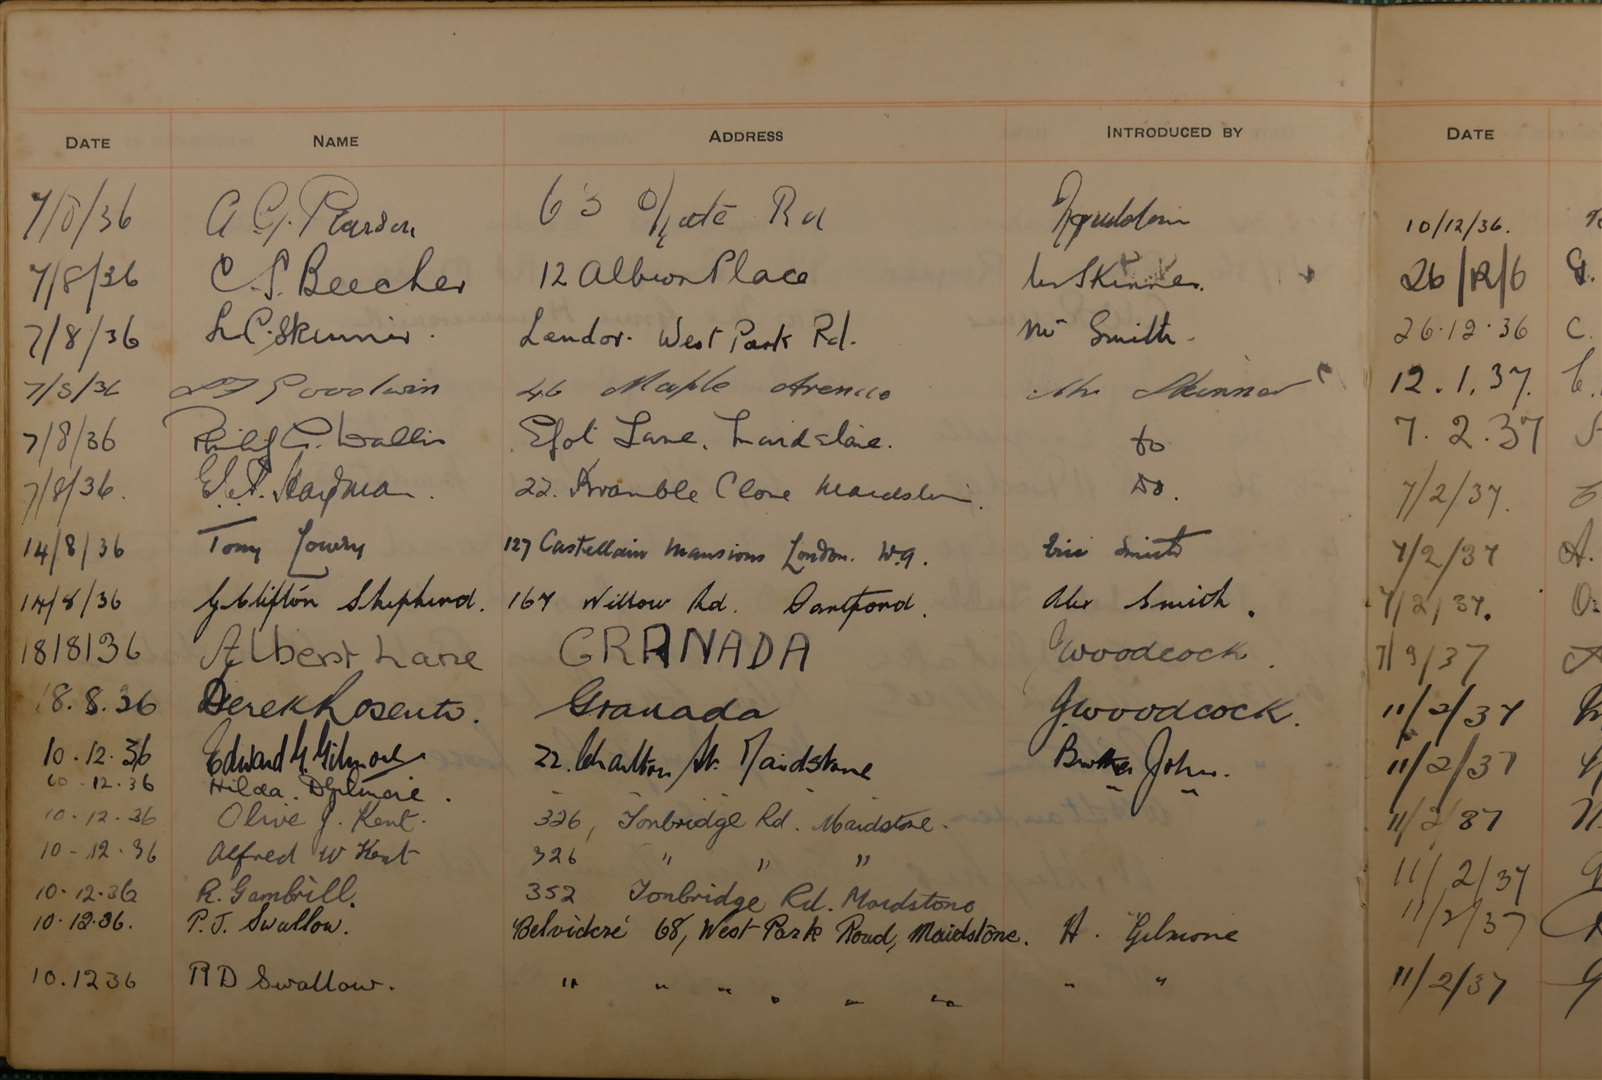 DATE NAME ADDRESS INTRODUCED BY DATE
7/8/36 A G. Pearson 63 Rd 10/12/36.
7/8/36 C. S. Beecher 12 Albion Place Skinner. 26/12/6 G.
7/8/36 L C. Skinner. Landor. West Park Rd. Mr Smith. 26.12.36 C.
7/8/36 Goodwin 46 Maple Avenue Mr Skinner 12.1.37.
7/8/36 Philip G. Wallis Lane, Maidstone. Do 7.2.37
7/8/36. E. A. 22. Bramble Close Maidstone. Do. 7/2/37.
14/8/36 Tony Lowry 127 Castellain Mansions London. W.9. Eric Smith 7/2/37 A.
14/8/36 G Clifton Shepherd. 167 Willow Rd. Dartford. Alex Smith. 7/2/37.
18/8/36 Albert Lane GRANADA J Woodcock. 7/2/37
18.8.36 Derek Granada J. Woodcock. 11/2/37
10.12.36 Edward G. Gilmore 22. Charlton St. Maidstone Brother John. 11/2/37
10.12.36 Hilda. D Gilmore.
10.12.36 Olive J. Kent. 326, Tonbridge Rd. Maidstone. 11/2/37
10-12.36 Alfred W Kent 326 " " " 11/2/37
10.12.36 R. Gambrill. 352 Tonbridge Rd. Maidstone
10.12.36. P. J. Swallow. Belvidere 68, West Park Road, Maidstone. H. Gilmore 11/2/37
10.12 36 R D Swallow. " " " " " " " " 11/2/37